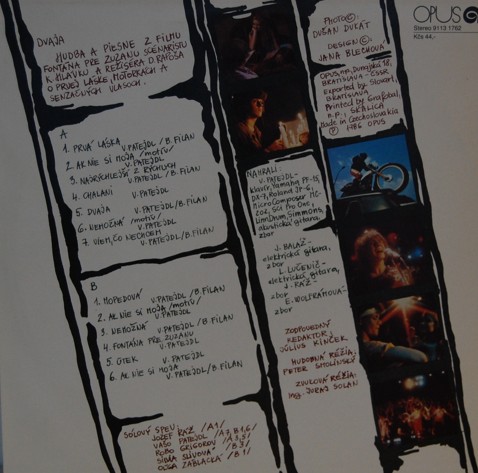 DVAJA
HUDBA A PIESNE Z FILMU
FONTÁNA PRE ZUZANU SCENÁRISTU
K. HLAVKU A REŽISÉRA D. RAPOŠA
O PRVEJ LÁSKE, MOTORKÁCH A
SENZAČNÝCH VLASOCH.
A
1. PRVÁ LÁSKA V. PATEJDL / B. FILAN
2. AK NIE SI MOJA /motív/ V. PATEJDL
3. NAJRÝCHLEJŠÍ Z RÝCHLYCH V. PATEJDL / B. FILAN
4. CHALANI V. PATEJDL
5. DVAJA V. PATEJDL / B. FILAN
6. NEMOŽNÁ /motív/ V. PATEJDL
7. VIEM, ČO NECHCEM V. PATEJDL / B. FILAN
B
1. MOPEDOVÁ V. PATEJDL / B. FILAN
2. AK NIE SI MOJA /motív/ V. PATEJDL
3. NEMOŽNÁ V. PATEJDL / B. FILAN
4. FONTÁNA PRE ZUZANU V. PATEJDL
5. ÚTEK V. PATEJDL
6. AK NIE SI MOJA V. PATEJDL / B. FILAN
SÓLOVÝ SPEV:
JOZEF RÁŽ /A1/
VAŠO PATEJDL /A7, B4,6/
ROBO GRIGOROV /A3,5/
SIBÍA SLIVOVÁ /B3/
OĽGA ZÁBLACKÁ /B1/
NAHRALI:
V. PATEJDL-
klavír, Yamaha PF-15,
DX-7, Roland JP-6,
MicroComposer MC-
202, Sci Pro One,
LinnDrum, Simmons,
akustická gitara,
zbor
J. BALÁŽ-
elektrická gitara,
zbor
L. LUČENIČ-
elektrická gitara,
J. RÁŽ-
zbor
E. WOLFRAMOVÁ-
zbor
ZODPOVEDNÝ
REDAKTOR:
JÚLIUS KINČEK
HUDOBNÁ RÉŽIA:
PETER SMOLINSKÝ
ZVUKOVÁ RÉŽIA:
Ing. JURAJ SOLAN
PHOTO ©:
DUŠAN DUKÁT
DESIGN ©:
JANA BLECHOVÁ
OPUS, n.p., Dunajská 18,
BRATISLAVA - ČSSR
Exported by Slovart,
Bratislava
Printed by Grafobal,
n.p.; SKALICA
Made in Czechoslovakia
Ⓟ 1986 OPUS
OPUS
Stereo 9113 1762
Kčs 44,-